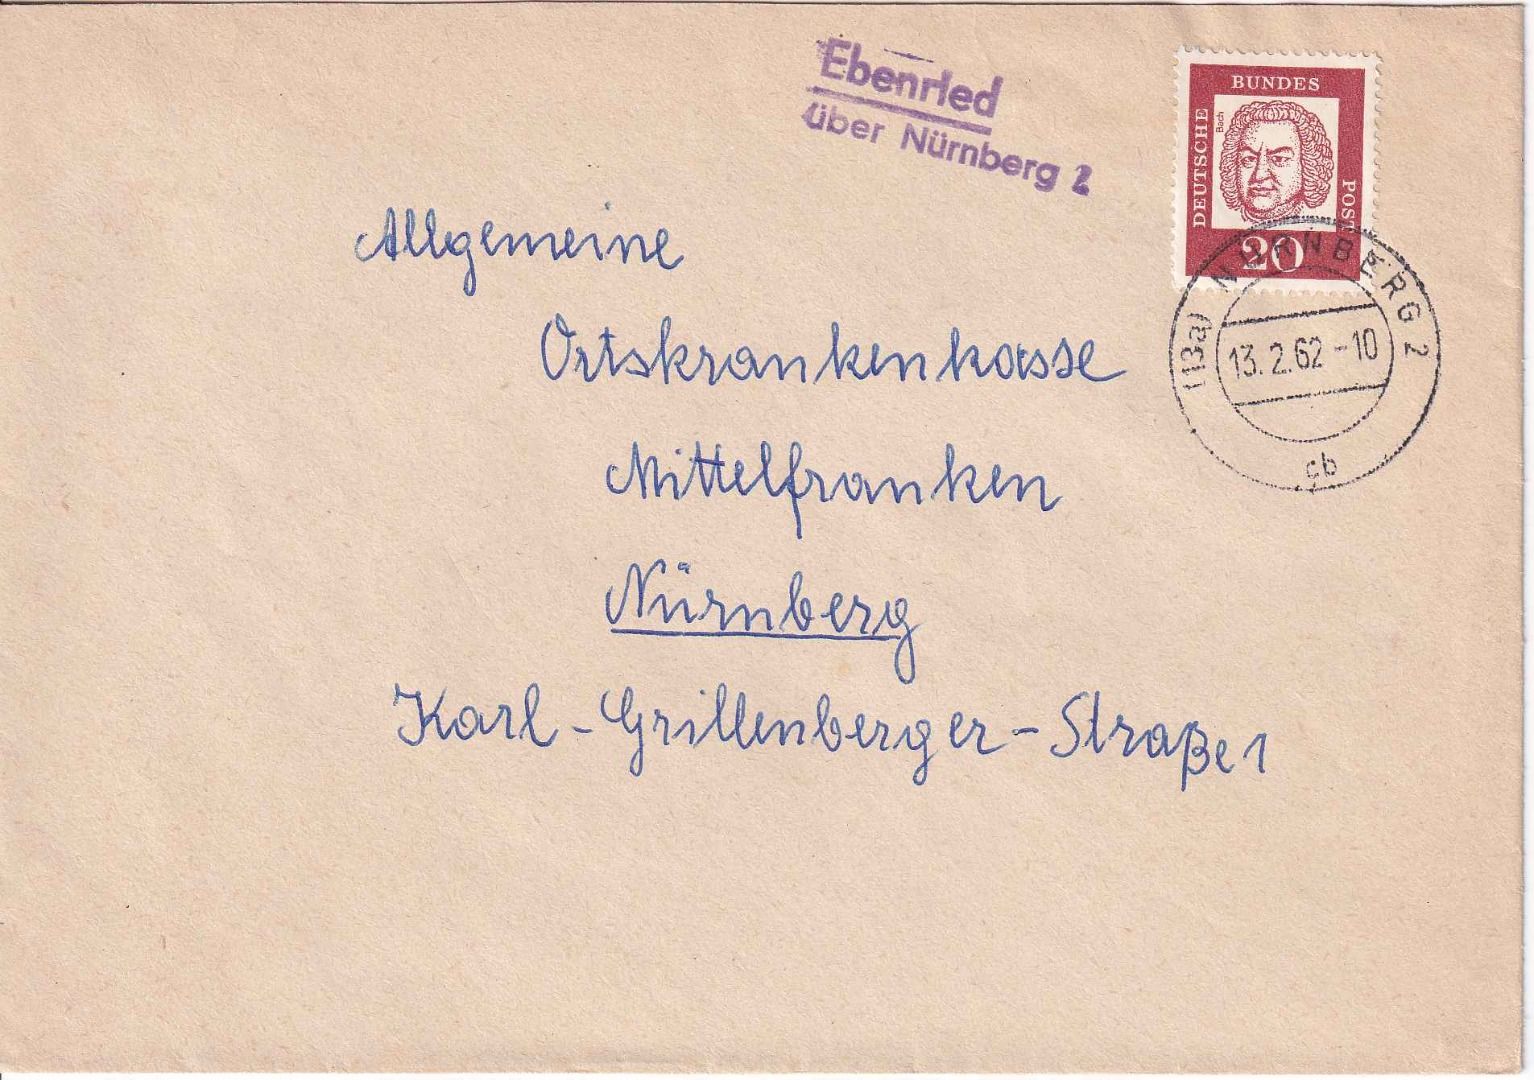 Ebenried
über Nürnberg 2
DEUTSCHE BUNDES POST
Bach
20
(13a) NÜRNBERG 2
13.2.62-10
cb
Allgemeine
Ortskrankenkasse
Mittelfranken
Nürnberg
Karl-Grillenberger-Straße 1